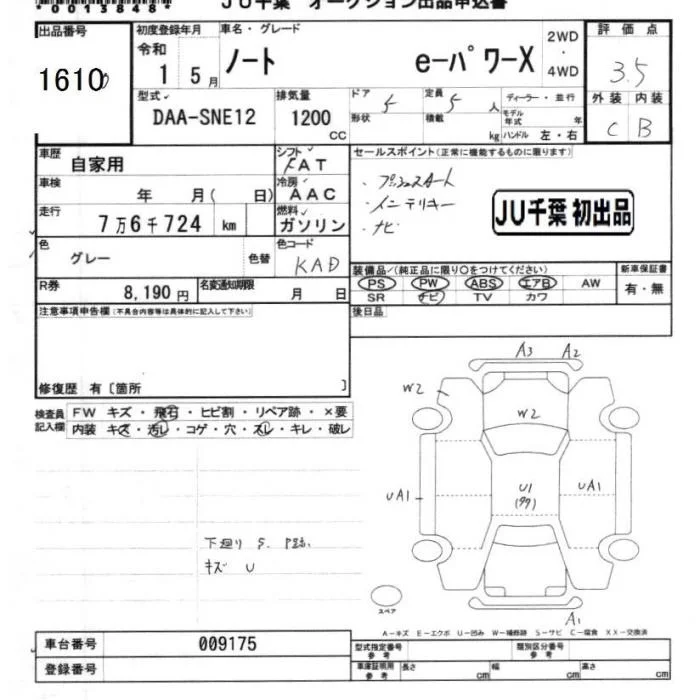 *00138​48*
JU千葉 オークション出品申込書
出品番号
1610
初度登録年月
令和
1 5月
車名・グレード
ノート e-パワーX
2WD
・
4WD
評価点
3.5
外装 内装
C B
型式
DAA-SNE12
排気量
1200 CC
ドア 5
形状
定員 5 人
積載 kg
ディーラー・並行
モデル年式 年
ハンドル 左・右
車歴
自家用
シフト
FAT
車検
年 月( 日)
冷房
AAC
走行
7万6千724 km
燃料
ガソリン
色
グレー
色替
色コード
KAD
R券
8,190円
名変通知期限
月 日
セールスポイント(正常に機能するものに限ります)
・プッシュスタート
・インテリキー
・ナビ
JU千葉 初出品
装備品/(純正品に限り〇をつけてください)
PS PW ABS エアB AW
SR ナビ TV カワ
新車保証書
有・無
後日品
注意事項申告欄(不具合内容等は具体的に記入して下さい)
修復歴 有〔箇所 〕
検査員記入欄
FW キズ・飛石・ヒビ割・リペア跡・×要
内装 キズ・汚レ・コゲ・穴・スレ・キレ・破レ
A3 A2
W2
W2
UA1
U1
UA1
下廻り S.
キズ U
スペア
A1
A-キズ E-エクボ U-凹み W-補修跡 S-サビ C-腐食 XX-交換済
車台番号
009175
登録番号
型式指定番号
参考
類別区分番号
参考
車庫証明用
参考
長さ cm 幅 cm 高さ cm